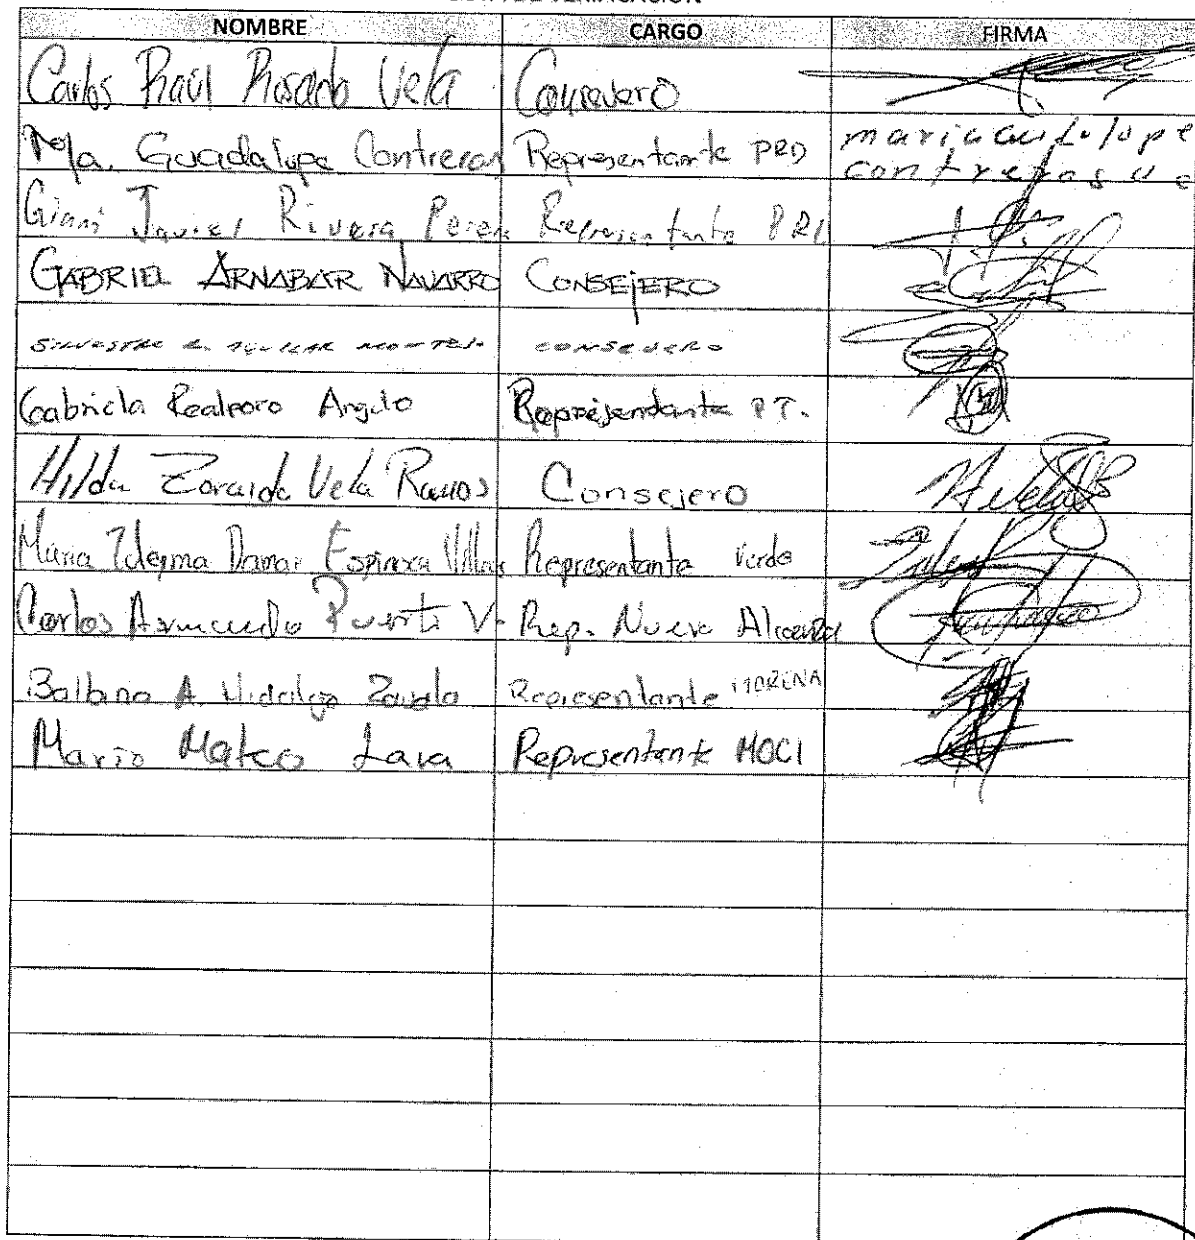 NOMBRE CARGO FIRMA
Carlos Raúl Rosado Vela Consejero
Ma. Guadalupe Contreras Representante PRD maria guadalupe
contreras
Giani Javier Rivera Perez Representante PRI
GABRIEL ARNABAR NAVARRO CONSEJERO
SILVESTRE AGUILAR CONSEJERO
Gabriela Realpozo Angulo Representante PT.
Hilda Zoraida Vela Ramos Consejero
Maria Espinoza Representante Verde
Carlos Armando Puerto V. Rep. Nueva Alianza
Balbina A. Hidalgo Zavala Representante MORENA
Mario Mateo Lara Representante MOCI